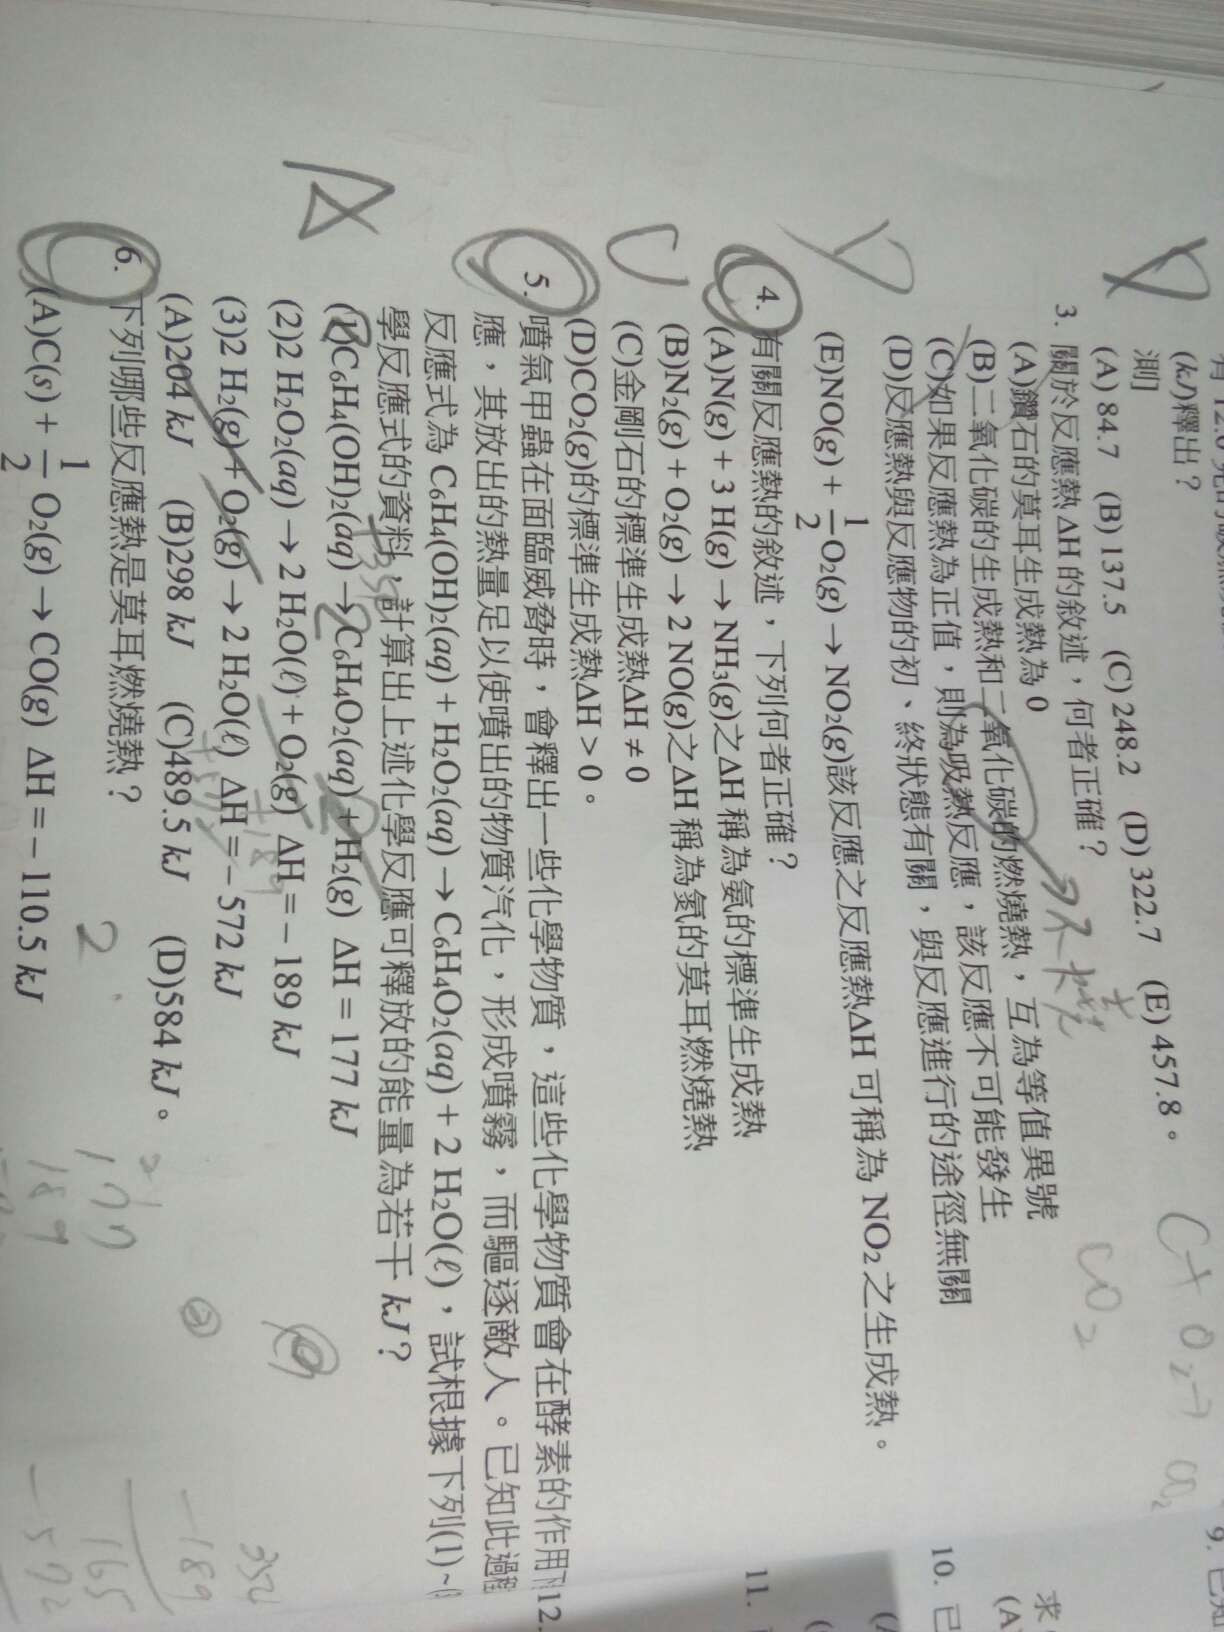 (kJ)釋出？
測〕
(A) 84.7 (B) 137.5 (C) 248.2 (D) 322.7 (E) 457.8。
3. 關於反應熱ΔH 的敘述，何者正確？
(A)鑽石的莫耳生成熱為 0
(B)二氧化碳的生成熱和二氧化碳的燃燒熱，互為等值異號
(C)如果反應熱為正值，則為吸熱反應，該反應不可能發生
(D)反應熱與反應物的初、終狀態有關，與反應進行的途徑無關
(E)NO(g) + 1/2 O₂(g) → NO₂(g)該反應之反應熱ΔH 可稱為 NO₂ 之生成熱。
4. 有關反應熱的敘述，下列何者正確？
(A)N(g) + 3 H(g) → NH₃(g)之ΔH 稱為氨的標準生成熱
(B)N₂(g) + O₂(g) → 2 NO(g)之ΔH 稱為氮的莫耳燃燒熱
(C)金剛石的標準生成熱ΔH ≠ 0
(D)CO₂(g)的標準生成熱ΔH > 0。
5. 噴氣甲蟲在面臨威脅時，會釋出一些化學物質，這些化學物質會在酵素的作用
應，其放出的熱量足以使噴出的物質汽化，形成噴霧，而驅逐敵人。已知此過程
反應式為 C₆H₄(OH)₂(aq) + H₂O₂(aq) → C₆H₄O₂(aq) + 2 H₂O(ℓ)，試根據下列(1)~
學反應式的資料，計算出上述化學反應可釋放的能量為若干 kJ？
(1)C₆H₄(OH)₂(aq) → C₆H₄O₂(aq) + H₂(g) ΔH = 177 kJ
(2)2 H₂O₂(aq) → 2 H₂O(ℓ) + O₂(g) ΔH = − 189 kJ
(3)2 H₂(g) + O₂(g) → 2 H₂O(ℓ) ΔH = − 572 kJ
(A)204 kJ (B)298 kJ (C)489.5 kJ (D)584 kJ。
6. 下列哪些反應熱是莫耳燃燒熱？
(A)C(s) + 1/2 O₂(g) → CO(g) ΔH = − 110.5 kJ
不燃燒
C + O₂ → CO₂
CO₂
2
177
189
354
−189
165
−572
9. 已知
10. 已
求
(A)
11.
12.